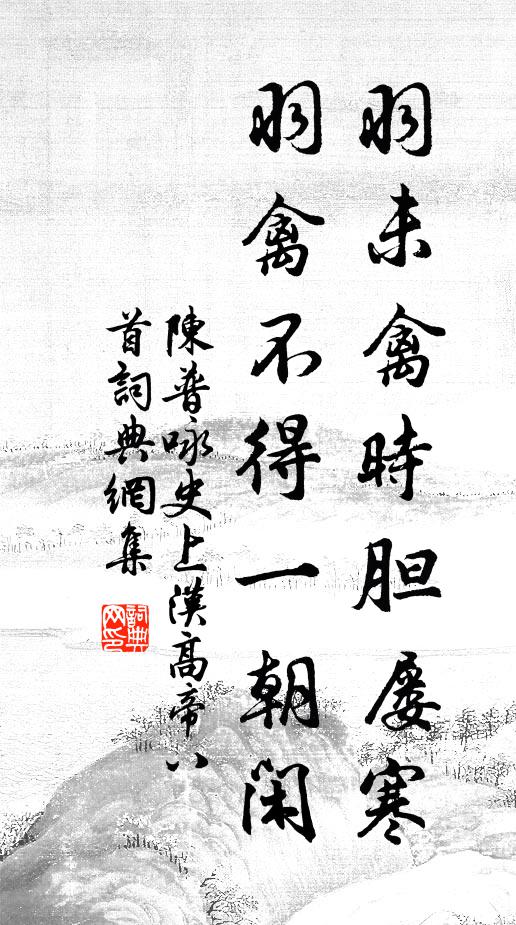 羽未禽時胆屡寒
羽禽不得一朝閑
陳普咏史上漢高帝八
首詞典網集
詞典网印